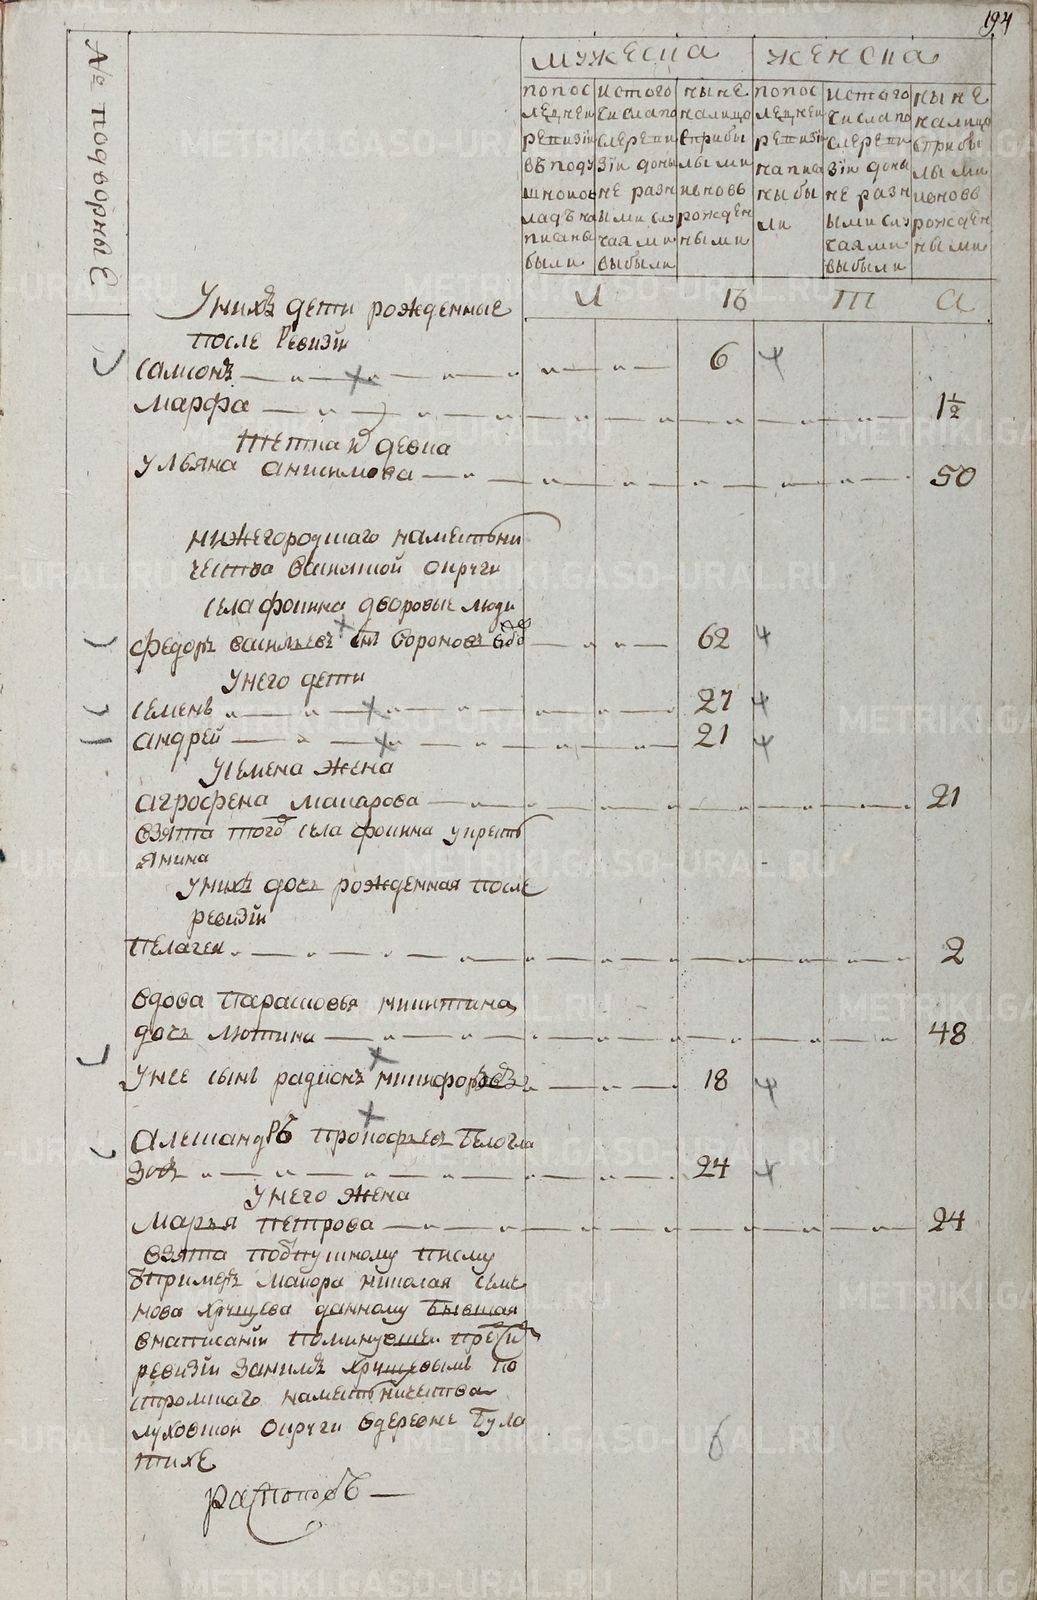 194
№ подворные
мужеска
женска
попос
леднеи
ревизiи
вподу
шномок
ладъ на
писаны
были
истого
числапо
слереви
зiи доны
не разн
ыми слу
чаями
выбыли
ныне
налицо
сприбы
лыми
ивновь
рожден
ными
попос
леднеи
ревизiи
написа
ны бы
ли
истого
числапо
слереви
зiи доны
не разн
ыми слу
чаями
выбыли
ныне
налицо
сприбы
лыми
ивновь
рожден
ными
л
16
т
а
Унихъ дети рожденные
после ревизiи
самсонъ 6
марфа 1½
тетка девка
ульяна анисимова 50
нижегородскаго наместни
чества васильской округи
села фокина дворовые люди
федоръ васильевъ снъ вороновъ вдо 62
Унего дети
семенъ 27
андрей 21
Усемена жена
агрофена макарова 21
взята того села фокина укресть
янина
Унихъ дочь рожденная после
ревизiи
пелагея 2
вдова парасковья никитина
дочь лютина 48
Унее сынъ радионъ никифоровъ 18
александръ прокофьевъ белогла
зовъ 24
Унего жена
марья петрова 24
взята поотпускному писму
отпримеръ маиора николая семе
нова хрущева данному бывшая
внаписанiи поминувшей пред
ревизiи занимъ хрущевымъ ко
стромскаго наместничества
луховской округи вдеревне була
тихе
6